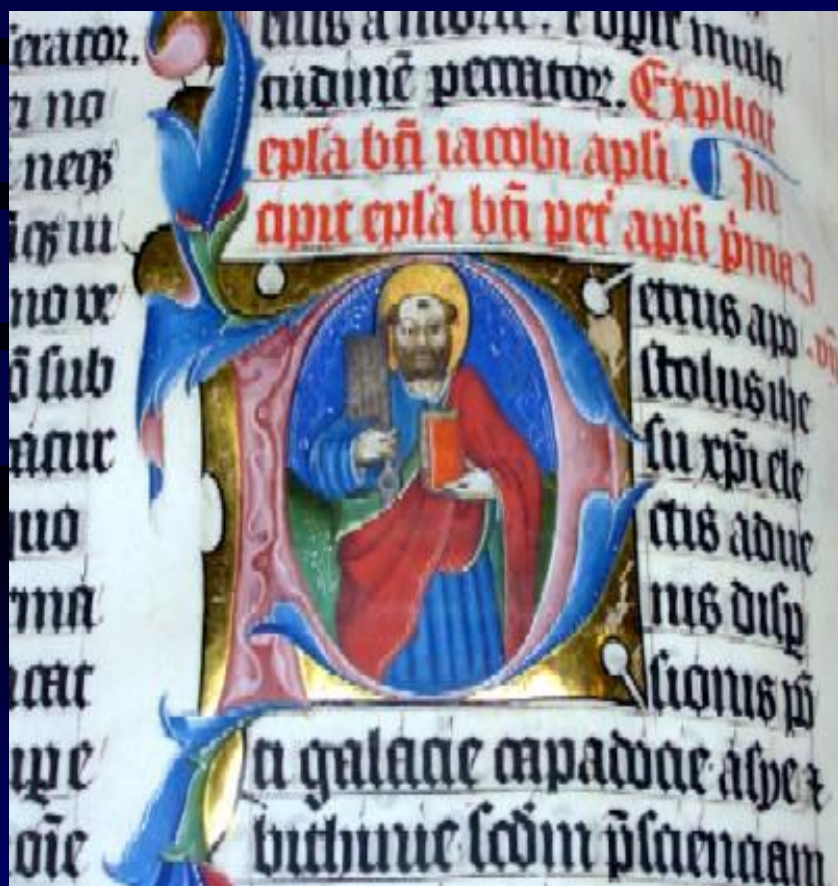 serator.
ti no
neqꝫ
no ve
sub
quo
eius a morte. ⁊ opiet multi
tudinē peccator. Explicit
epl'a btī iacobi apl'i. In
cipit epl'a btī pet' apl'i p'ma
etrus apo
stolus ihe
su xp̄i ele
ctis adue
nis disꝑ
sionis pō
ti galacie capadocie asye ⁊
bithinie scd̄m p̄scienciam